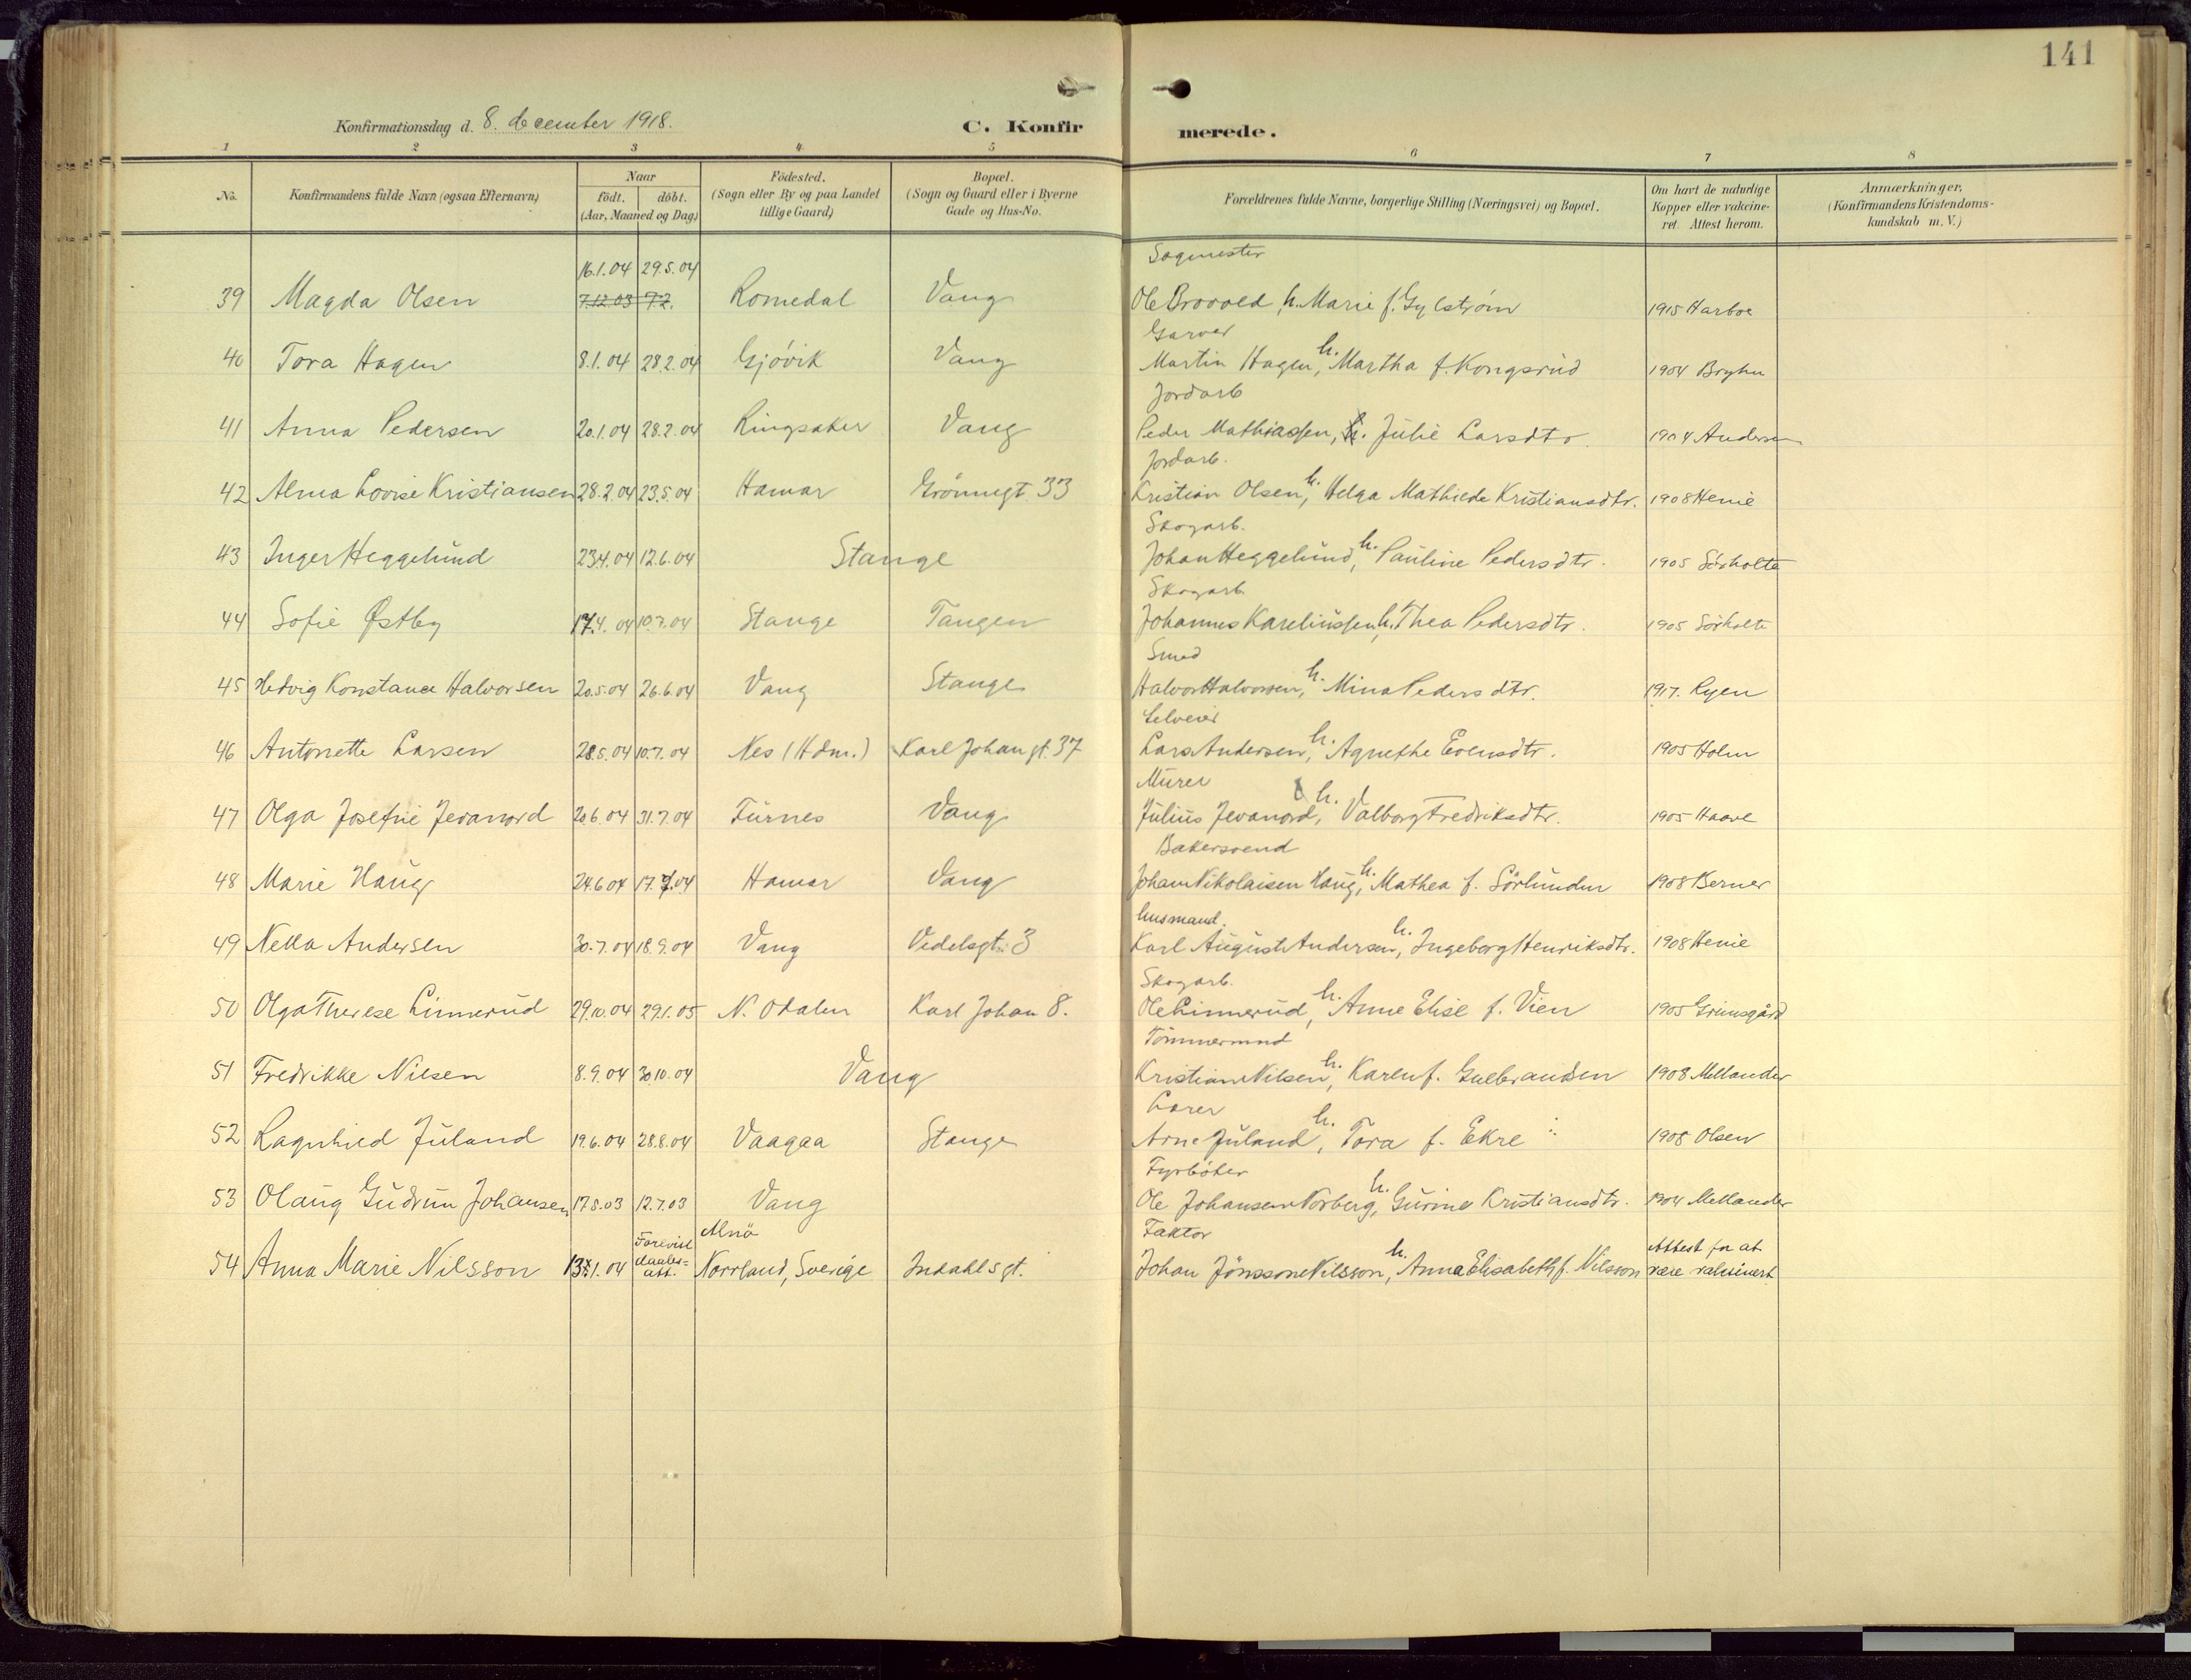 141
Konfirmationsdag d. 8. december 1918.
C. Konfir merede.
1 2 3 4 5 6 7 8
No. Konfirmandens fulde Navn (ogsaa Efternavn) Naar födt. döbt. (Aar, Maaned og Dag) Födested. (Sogn eller By og paa Landet tillige Gaard) Bopæl. (Sogn og Gaard eller i Byerne Gade og Hus-No. Forældrenes fulde Navne, borgerlige Stilling (Næringsvei) og Bopæl. Om havt de naturlige Kopper eller vakcineret. Attest herom. Anmærkninger. (Konfirmandens Kristendomskundskab m. V.)
16.1.04 29.5.04 Sagmester
39 Magda Olsen 7.12.03 7.2. Romedal Vang Ole Brovold, h. Marie f. Gylstrøm 1915 Harboe
Garver
40 Tora Hagen 8.1.04 28.2.04 Gjövik Vang Martin Hagen, h. Martha f. Kongsrud 1904 Bryhn
Jordarb
41 Anna Pedersen 20.1.04 28.2.04 Ringsaker Vang Peder Mathiassen, h. Julie Larsdtr. 1904 Andersen
Jordarb.
42 Alma Lovise Kristiansen 28.2.04 23.5.04 Hamar Grönnegt. 33 Kristian Olsen, h. Helga Mathilde Kristiansdtr. 1908 Henie
Skogarb.
43 Inger Heggelund 23.4.04 12.6.04 Stange Johan Heggelund, h. Pauline Pedersdtr. 1905 Sörholte
Skogarb.
44 Sofie Østby 17.4.04 10.7.04 Stange Tangen Johannes Kareliussen, h. Thea Pedersdtr. 1905 Sörholte
Smed
45 Hedvig Konstance Halvorsen 20.5.04 26.6.04 Vang Stange Halvor Halvorsen, h. Mina Pedersdtr. 1917. Ryen
Selveier
46 Antonette Larsen 28.5.04 10.7.04 Nes (Hdm.) Karl Johan gt. 37 Lars Andersen, h. Agnethe Evensdtr. 1905 Holm
Murer
47 Olga Josefine Jevanord 20.6.04 31.7.04 Furnes Vang Julius Jevanord, h. Valborg Fredriksdtr. 1905 Haave
Bakersvend
48 Marie Haug 24.6.04 17.7.04 Hamar Vang Johan Nikolaisen Haug, h. Mathea f. Sörlunden 1908 Berner
husmand.
49 Nella Andersen 30.7.04 18.9.04 Vang Vedelsgt. 3 Karl August Andersen, h. Ingeborg Henriksdtr. 1908 Henie
Skogarb.
50 Olga Therese Linnerud 29.10.04 29.1.05 N. Odalen Karl Johan 8. Ole Linnerud, h. Anne Elise f. Vien 1905 Grimsgård
Tömmermnd
51 Fredrikke Nilsen 8.9.04 30.10.04 Vang Kristian Nilsen, h. Karen f. Gulbrandsen 1908 Mellander
Lærer
52 Ragnhild Juland 19.6.04 28.8.04 Vaagaa Stange Arne Juland, h. Tora f. Ekre 1908 Olsen
Fyrböter
53 Olaug Gudrun Johansen 17.5.03 12.7.03 Vang Ole Johansen Norberg, h. Gurine Kristiansdtr. 1904 Mellander
Forevist daabsatt. Alnö Faktor Attest for at
54 Anna Marie Nilsson 13.1.04 Norrland, Sverige Indahlsgt. Johan Jönssone Nilsson, h. Anna Elisabeth f. Nilsson være vaksinert